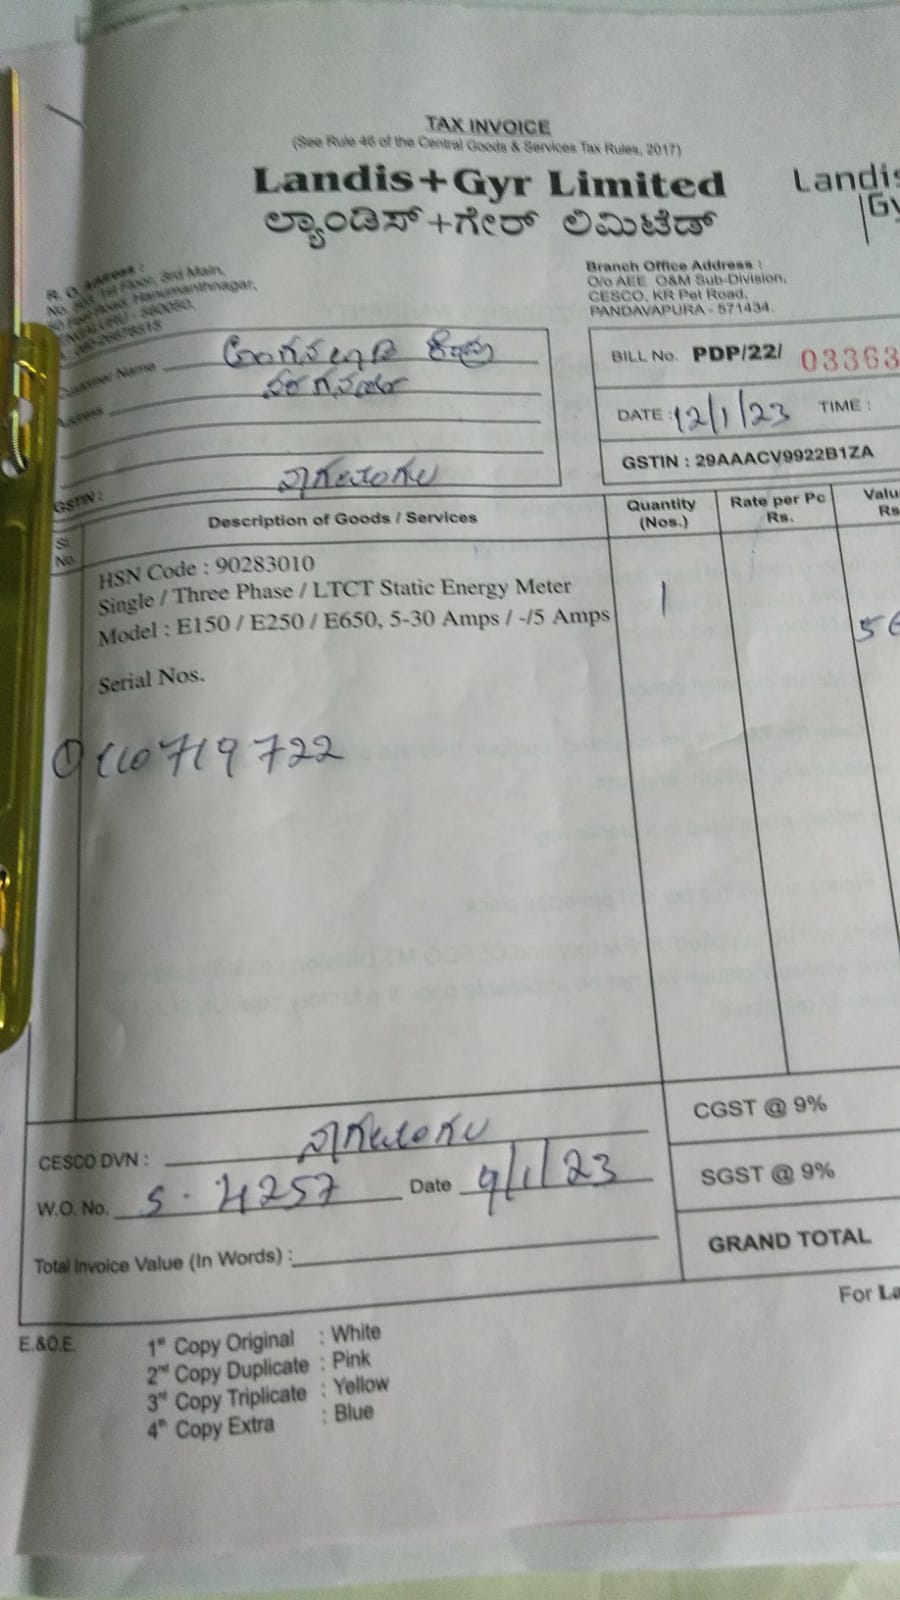 TAX INVOICE
(See Rule 46 of the Central Goods & Services Tax Rules, 2017)
Landis+Gyr Limited
Landis
Gy
ಲ್ಯಾಂಡಿಸ್+ಗೇರ್ ಲಿಮಿಟೆಡ್
R. O. Address :
1st Floor, 3rd Main,
Road, Hanumanthnagar,
560050.
Branch Office Address :
O/o AEE O&M Sub-Division,
CESCO, KR Pet Road,
PANDAVAPURA - 571434.
Customer Name
Address
GSTIN :
BILL No. PDP/22/ 03363
DATE : 12/1/23 TIME :
GSTIN : 29AAACV9922B1ZA
Sl. No. Description of Goods / Services Quantity (Nos.) Rate per Pc Rs. Valu Rs
HSN Code : 90283010
Single / Three Phase / LTCT Static Energy Meter 1
Model : E150 / E250 / E650, 5-30 Amps / -/5 Amps
Serial Nos.
719722
CESCO DVN :
W.O. No. S. 4257 Date 9/1/23
Total Invoice Value (In Words) :
CGST @ 9%
SGST @ 9%
GRAND TOTAL
For La
E.&O.E.
1st Copy Original : White
2nd Copy Duplicate : Pink
3rd Copy Triplicate : Yellow
4th Copy Extra : Blue